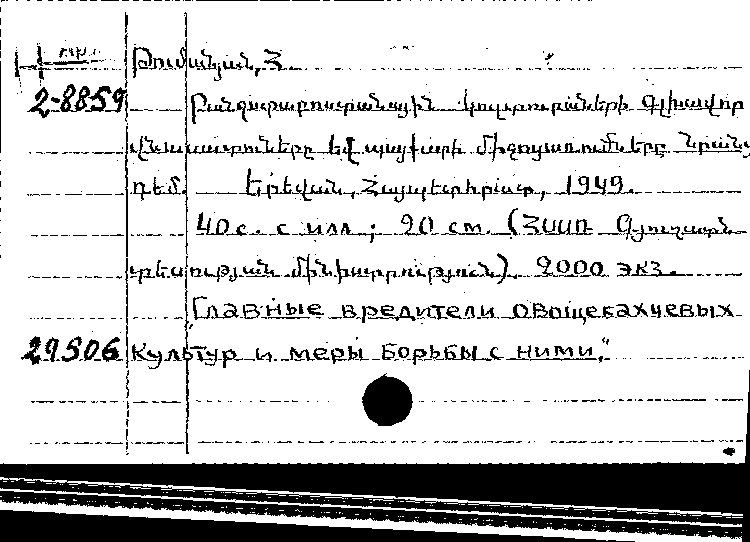 Թումանյան, Հ.
2-8859 Բանջարաբոստանային կուլտուրաների գլխավոր
վնասատուները եվ պայքարի միջոցառումները նրանց
դեմ. Երեվան, Հայպետհրատ, 1949.
40 с. с илл; 20 см. (ՀՍՍՌ Գյուղատն-
տեսության մինիստրություն). 2000 экз.
"Главные вредители овощебахчевых
29506 культур и меры борьбы с ними."